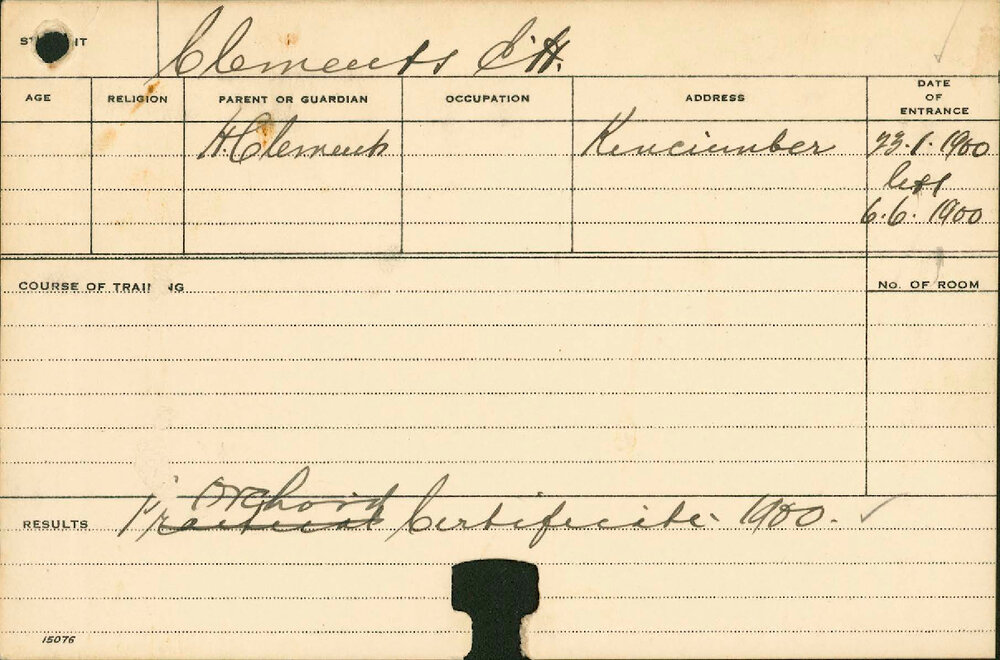 STUDENT Clements E. H.
AGE RELIGION PARENT OR GUARDIAN OCCUPATION ADDRESS DATE OF ENTRANCE
H. Clements Kincumber 23.1.1900
left
6.6.1900
COURSE OF TRAINING No. OF ROOM
Orchard
RESULTS Practical Certificate 1900.
15076